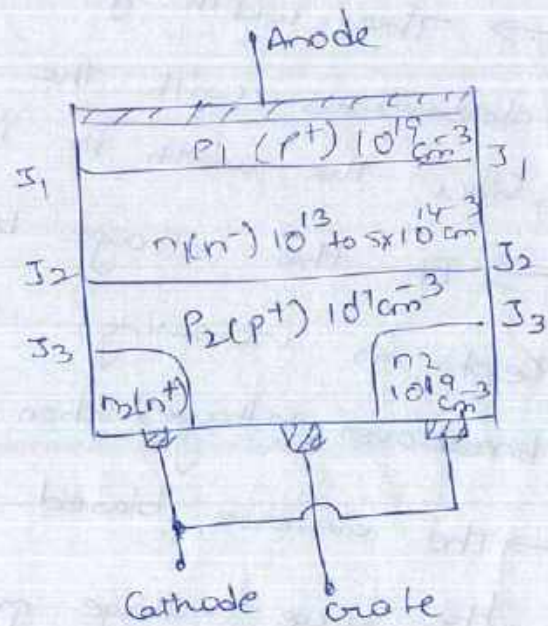 Anode
P1 (p+) 10^19 cm^-3
J1 J1
n1(n-) 10^13 to 5x10^14 cm^-3
J2 J2
P2(p+) 10^17 cm^-3
J3 J3
n2(n+) n2 10^19 cm^-3
Cathode Gate